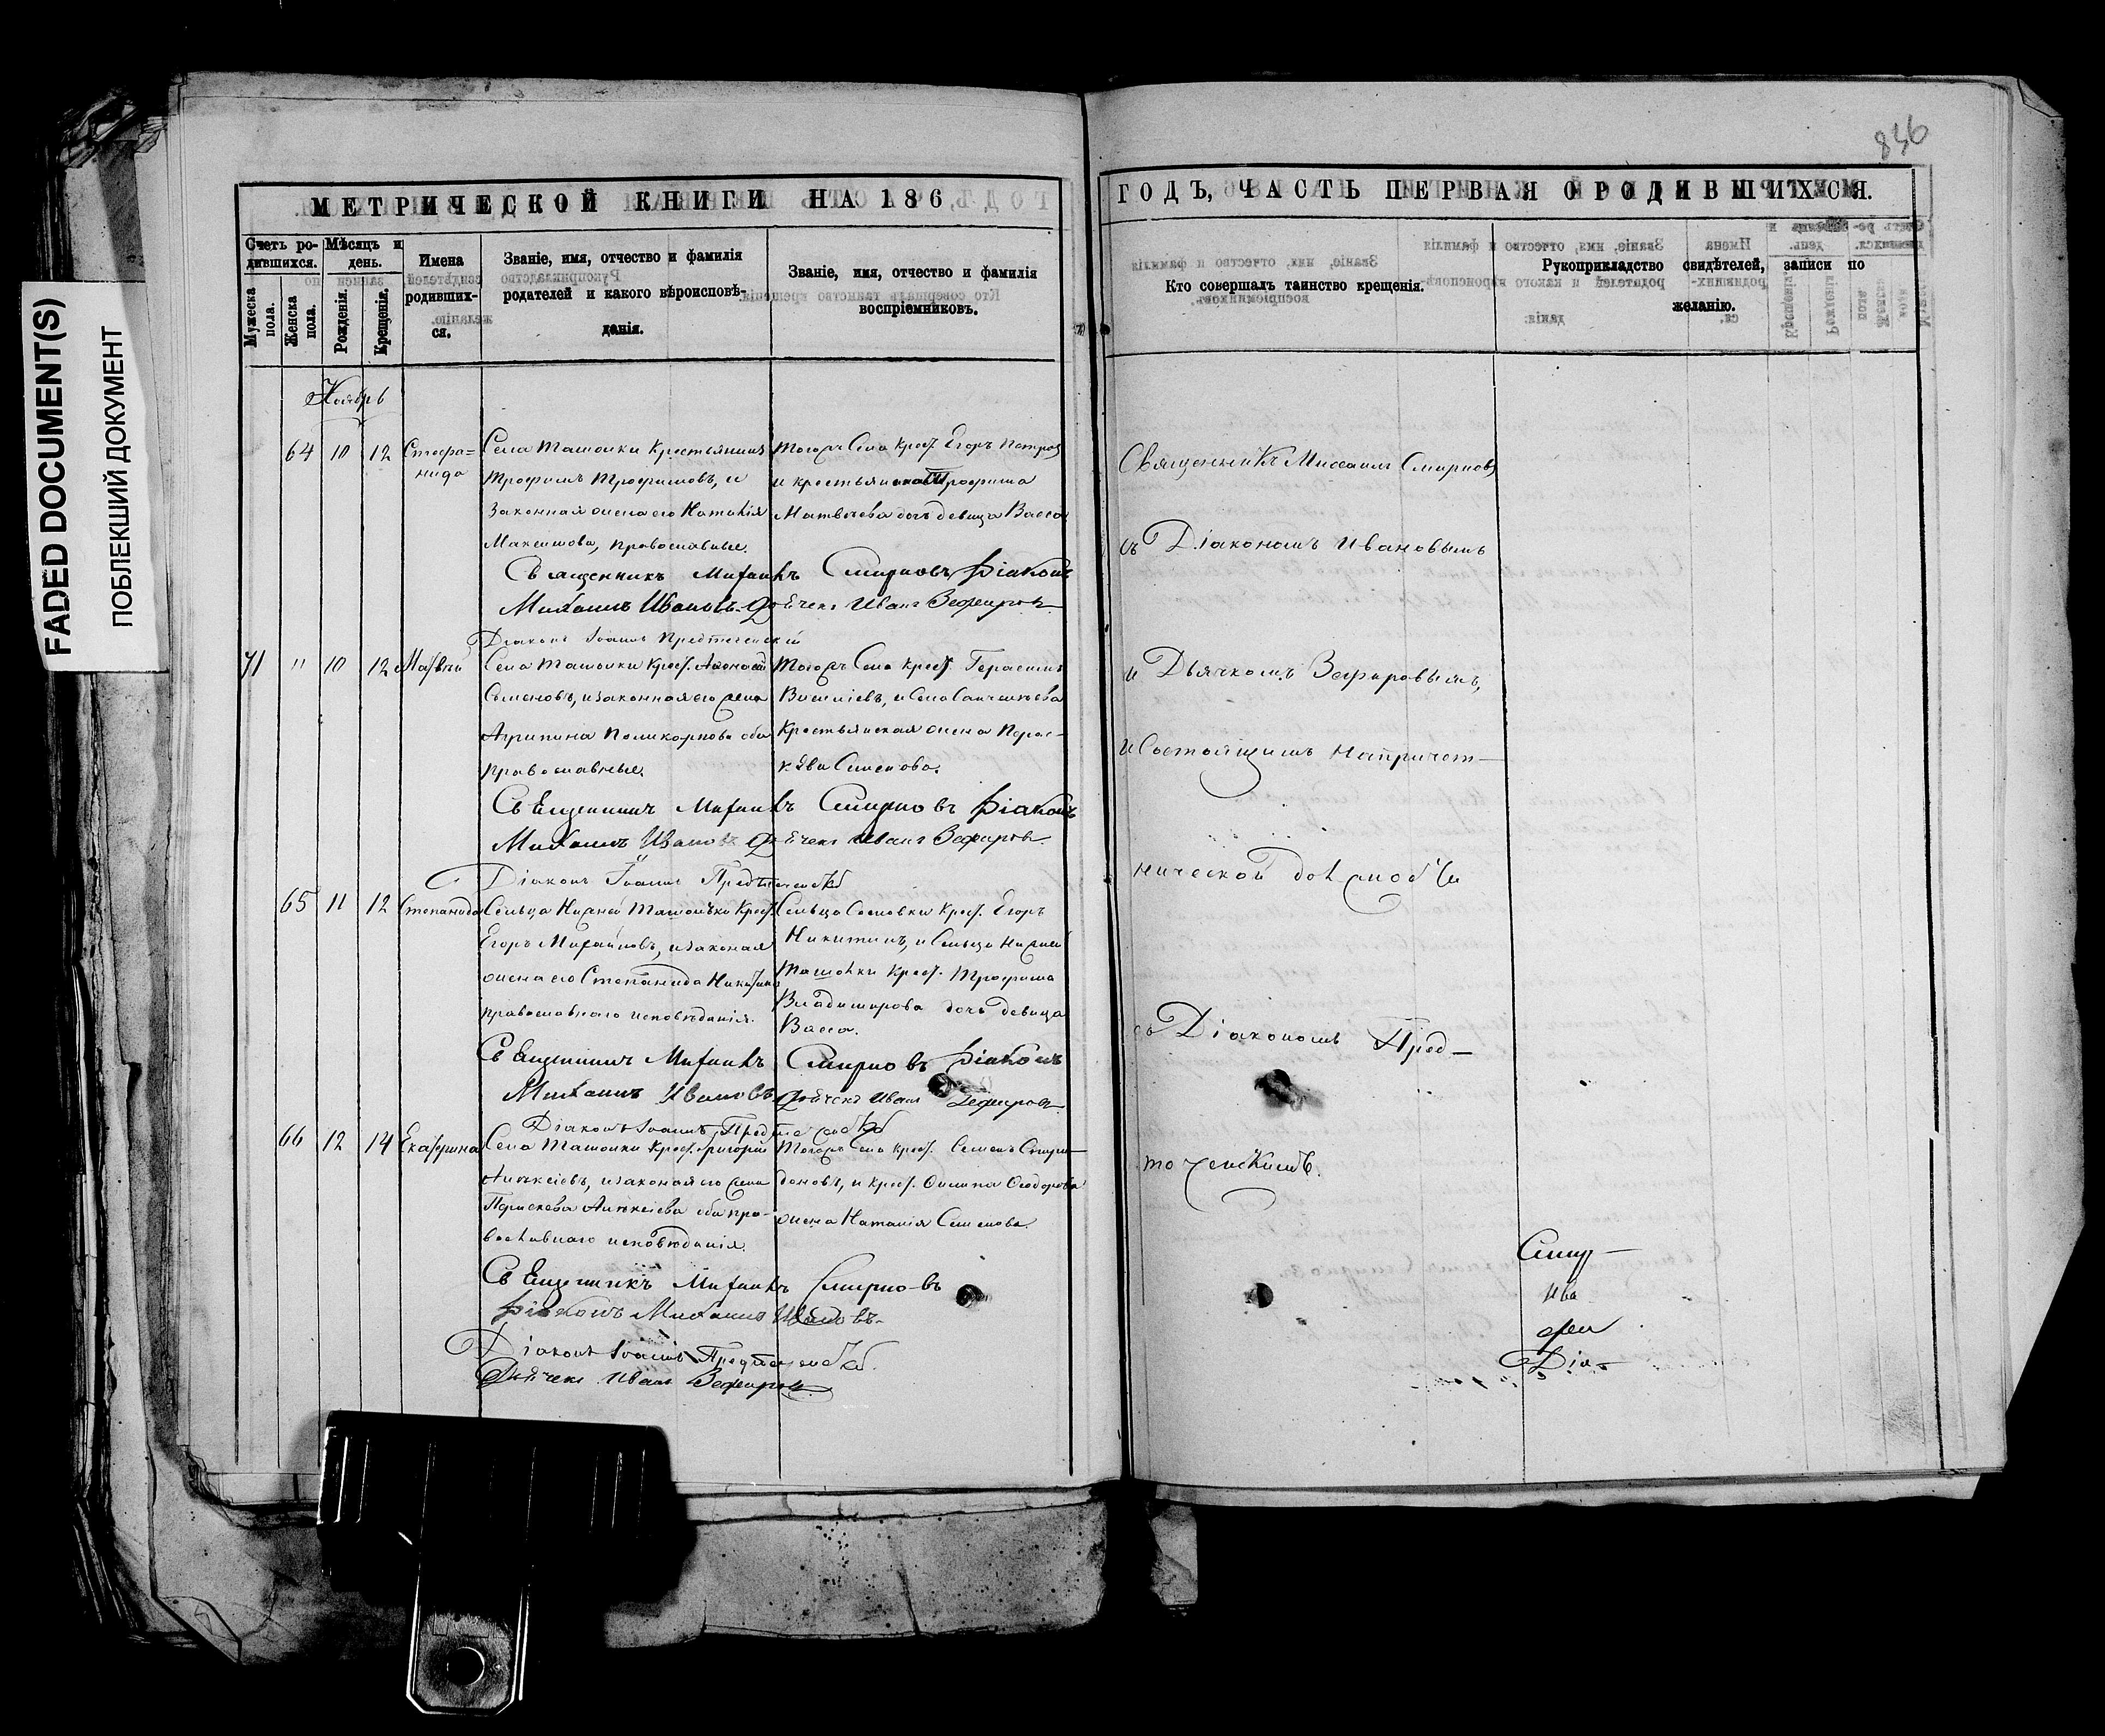 FADED DOCUMENT(S)
ПОБЛЕКШИЙ ДОКУМЕНТ
836
МЕТРИЧЕСКОЙ КНИГИ НА 186
Счетъ ро-
дившихся.
Мужеска
пола.
Женска
пола.
Мѣсяцъ и
день.
Рожденія.
Крещенія.
Имена
родивших-
ся.
Званіе, имя, отчество и фамилія
родителей и какого вѣроисповѣ-
данія.
Званіе, имя, отчество и фамилія
воспріемниковъ.
Ноябрь
64 10 12 Стефа=
нида
Села Ташолки Крестьянинъ
Трофимъ Трофимовъ, и
Законная жена его Наталія
Максимова, православные.
Тогожъ Села Крест. Егоръ Петровъ
и крестьянина Трофима
Матвѣева дочь девица Васса
Священникъ Михаилъ Смирновъ Діаконъ
Михаилъ Ивановъ. Дьячекъ Иванъ Зефировъ
Діаконъ Іоаннъ Предтеченскій
71 " 10 12 Матвѣй
Села Ташолки Крест. Афонасій
Семеновъ, и законная его жена
Агрипина Поликарпова оба
православные.
Тогожъ Села крест. Герасимъ
Василіевъ, и Села
Крестьянская жена Парас-
кѣва Семенова.
Священникъ Михаилъ Смирновъ Діаконъ
Михаилъ Ивановъ Дьячекъ Иванъ Зефировъ.
Діаконъ Іоаннъ Предтеченскій
65 11 12 Степанида
Сельца Нижней Ташолки Крест.
Егоръ Михайловъ, и законая
жена его Степанида Никитина
православнаго исповѣданія.
Сельца Сосновки Крест. Егоръ
Никитинъ, и Сельца Нижней
Ташолки Крест. Трофима
Владимирова дочь девица
Васса.
Священникъ Михаилъ Смирновъ Діаконъ
Михаилъ Ивановъ Дьячекъ Иванъ Зефировъ
Діаконъ Іоаннъ Предтеченскій
66 12 14 Екатерина
Села Ташолки Крест. Григорій
Алексіевъ, и законая его жена
Параскева Алексіева оба пра-
вославнаго исповѣданія.
Тогожъ Села крест. Семенъ Спири-
доновъ, и крест. Филипа Феодорова
жена Наталія Семенова.
Священникъ Михаилъ Смирновъ
Діаконъ Михаилъ Ивановъ.
Діаконъ Іоаннъ Предтеченскій.
Дьячекъ Иванъ Зефировъ
ГОДЪ, ЧАСТЬ ПЕРВАЯ О РОДИВШИХСЯ.
Кто совершалъ таинство крещенія.
Рукоприкладство свидѣтелей, записи по
желанію.
Священникъ Михаилъ Смирновъ
съ Діакономъ Ивановымъ
и Дьячкомъ Зефировымъ,
и Состоящимъ на причет-
нической должности
съ Діакономъ Пред-
теченскимъ.
Смир-
Ива
Діа-